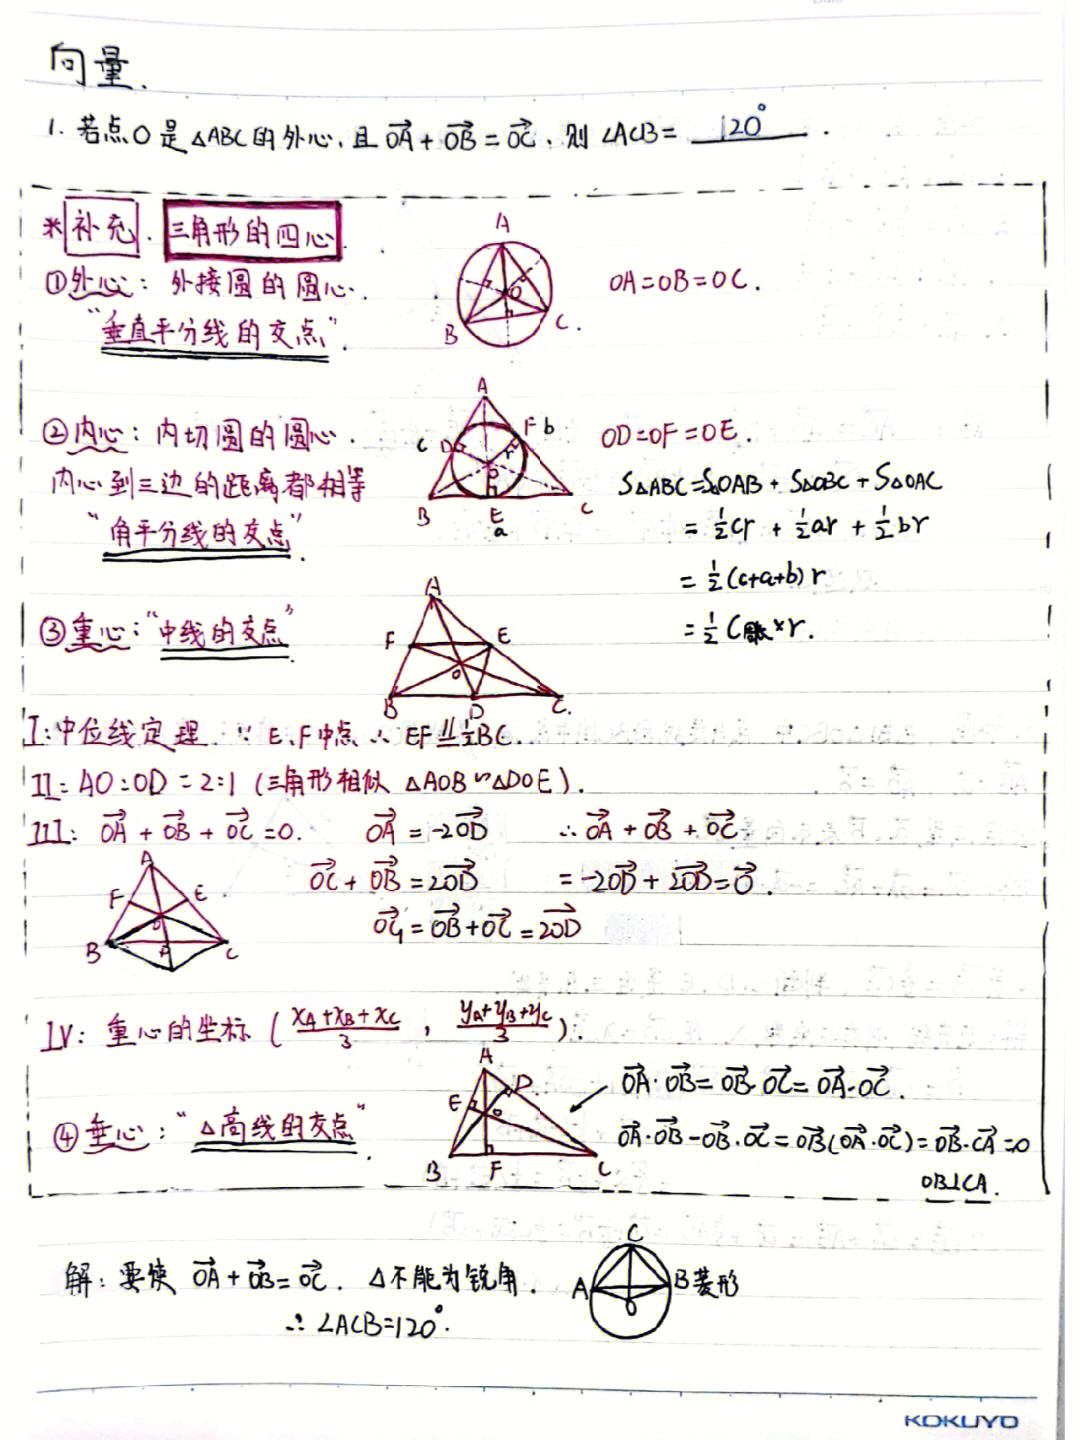 向量.
1. 若点O是△ABC的外心,且 OA→ + OB→ = OC→,则 ∠ACB = 120° .
※ 补充. 三角形的四心.
①外心: 外接圆的圆心.
"垂直平分线的交点".
A
O
B
C
OA=OB=OC.
②内心: 内切圆的圆心.
内心到三边的距离都相等
"角平分线的交点".
A
F b
c D
r
O
B E C
a
OD=OF=OE.
S△ABC=S△OAB + S△OBC + S△OAC
= 1/2 cr + 1/2 ar + 1/2 br
= 1/2 (c+a+b) r
= 1/2 C周长 × r.
③重心: "中线的交点".
A
F E
O
B D C
I: 中位线定理. ∵ E、F中点 ∴ EF∥= 1/2 BC.
II: AO:OD = 2:1 (三角形相似 △AOB∽△DOE).
III: OA→ + OB→ + OC→ = 0. OA→ = -2OD→ ∴ OA→ + OB→ + OC→
OC→ + OB→ = 2OD→ = -2OD→ + 2OD→ = 0→.
OG→ = OB→ + OC→ = 2OD→
A
F E
O
B D C
IV: 重心的坐标 ( (xA+xB+xC)/3 , (yA+yB+yC)/3 ).
④垂心: "△高线的交点".
A
D
E O
B F C
OA→·OB→ = OB→·OC→ = OA→·OC→.
OA→·OB→ - OB→·OC→ = OB→(OA→·OC→) = OB→·CA→ = 0
OB⊥CA.
解: 要使 OA→ + OB→ = OC→. △不能为锐角.
∴ ∠ACB=120°.
C
A B 菱形
O
KOKUYO